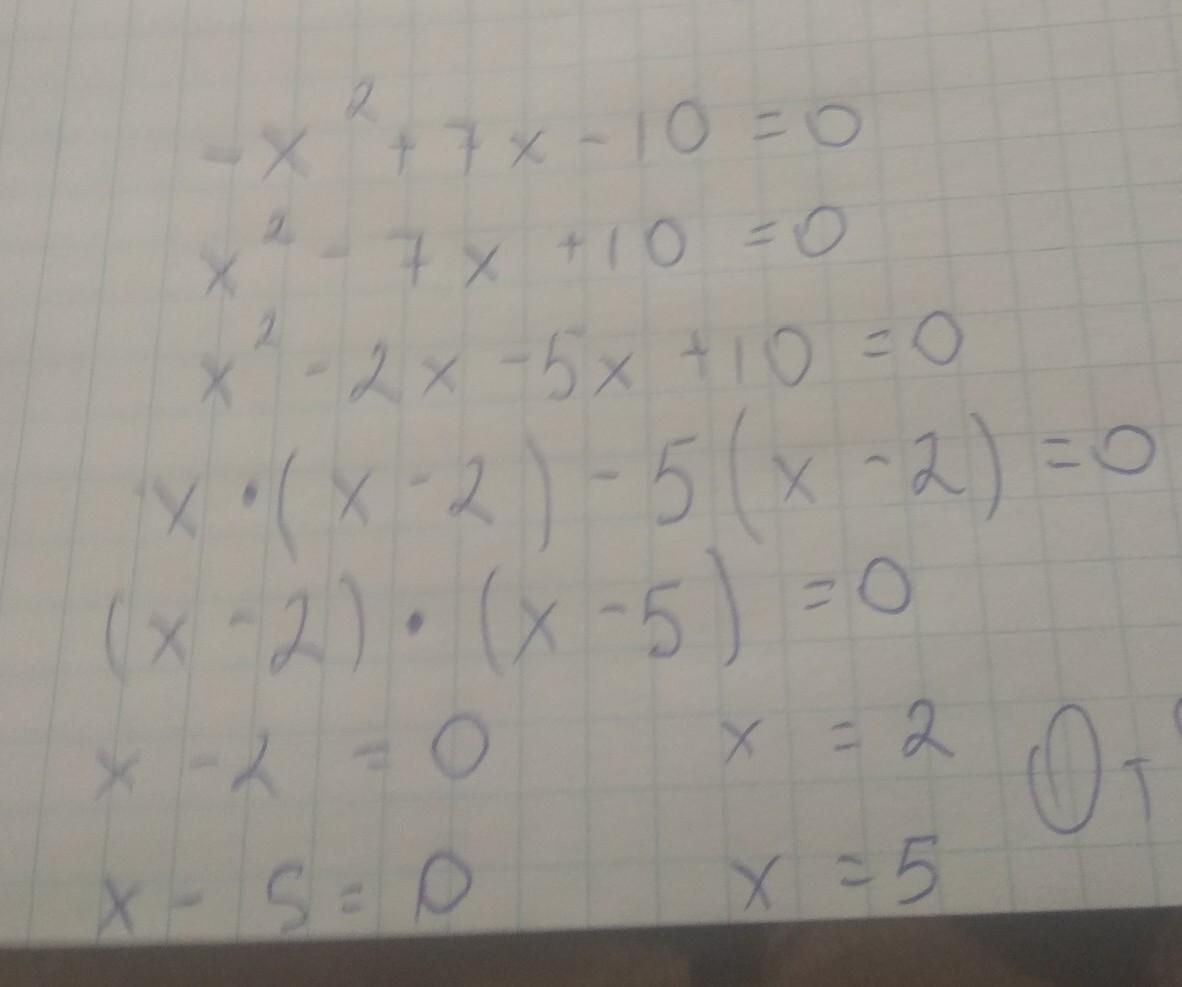 -x² + 7x - 10 = 0
x² - 7x + 10 = 0
x² - 2x - 5x + 10 = 0
x · (x - 2) - 5(x - 2) = 0
(x - 2) · (x - 5) = 0
x - 2 = 0 x = 2
x - 5 = 0 x = 5